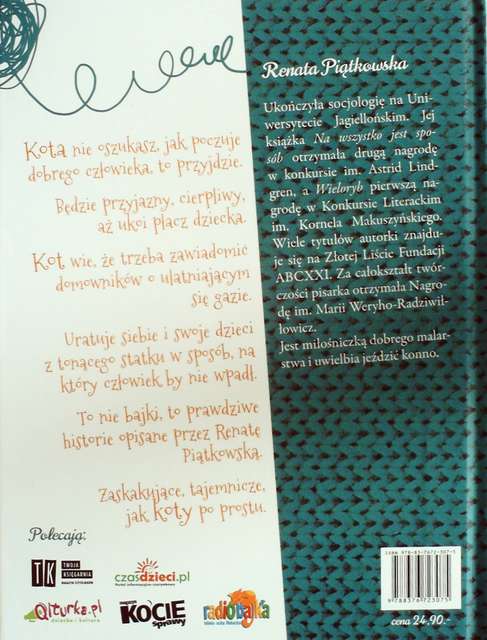 Kota nie oszukasz, jak poczuje
dobrego człowieka, to przyjdzie.
Będzie przyjazny, cierpliwy,
aż ukoi płacz dziecka.
Kot wie, że trzeba zawiadomić
domowników o ulatniającym
się gazie.
Uratuje siebie i swoje dzieci
z tonącego statku w sposób, na
który człowiek by nie wpadł.
To nie bajki, to prawdziwe
historie opisane przez Renatę
Piątkowską.
Zaskakujące, tajemnicze,
jak koty po prostu.
Polecają:
TK TWOJA
KSIĘGARNIA
czasdzieci.pl
Qlturka.pl
dziecko i kultura
magazyn
KOCIE
sprawy
radiobajka
Renata Piątkowska
Ukończyła socjologię na Uni-
wersytecie Jagiellońskim. Jej
książka Na wszystko jest spo-
sób otrzymała drugą nagrodę
w konkursie im. Astrid Lind-
gren, a Wieloryb pierwszą na-
grodę w Konkursie Literackim
im. Kornela Makuszyńskiego.
Wiele tytułów autorki znajdu-
je się na Złotej Liście Fundacji
ABCXXI. Za całokształt twór-
czości pisarka otrzymała Nagro-
dę im. Marii Weryho-Radziwił-
łowicz.
Jest miłośniczką dobrego malar-
stwa i uwielbia jeździć konno.
ISBN 978-83-7672-307-5
9 788376 723075
cena 24,90.-